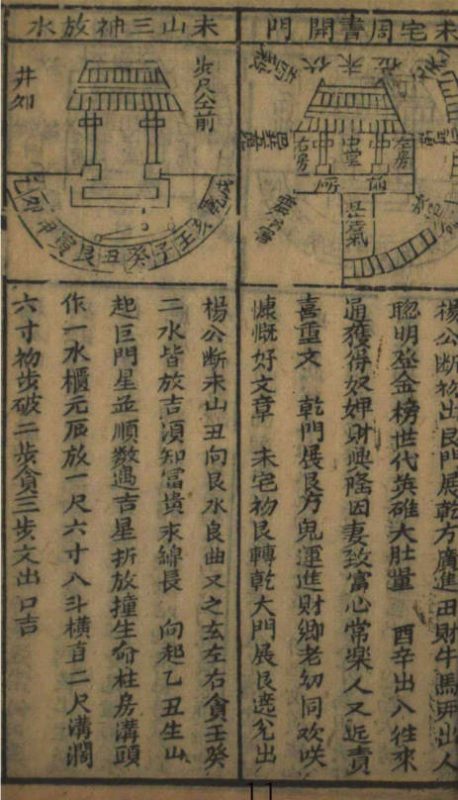 未宅周書開門
左房
中堂
右房
楊公断物出艮門展乾方廣進田財牛馬出人
聰明登金榜世代英雄大肚量 酉辛出入往來
通獲得奴婢財興隆因妻致富心常樂人又近貴
喜重文 乾門展艮方鬼運進財卿老幼同欢咲
慷慨好文章 未宅初艮轉乾大門展艮遶兊出
未山三神放水
步尺公前
壬子癸丑艮寅甲
楊公断未山丑向艮水良曲又之玄左右貪壬癸
二水皆放吉須知富貴求綿長 向起乙丑生山
起巨門星並順数遇吉星折放撞生命柱房溝頭
作一水櫃元辰放一尺六寸八斗橫直二尺溝濶
六寸初步破二步貪三步文出口吉
11